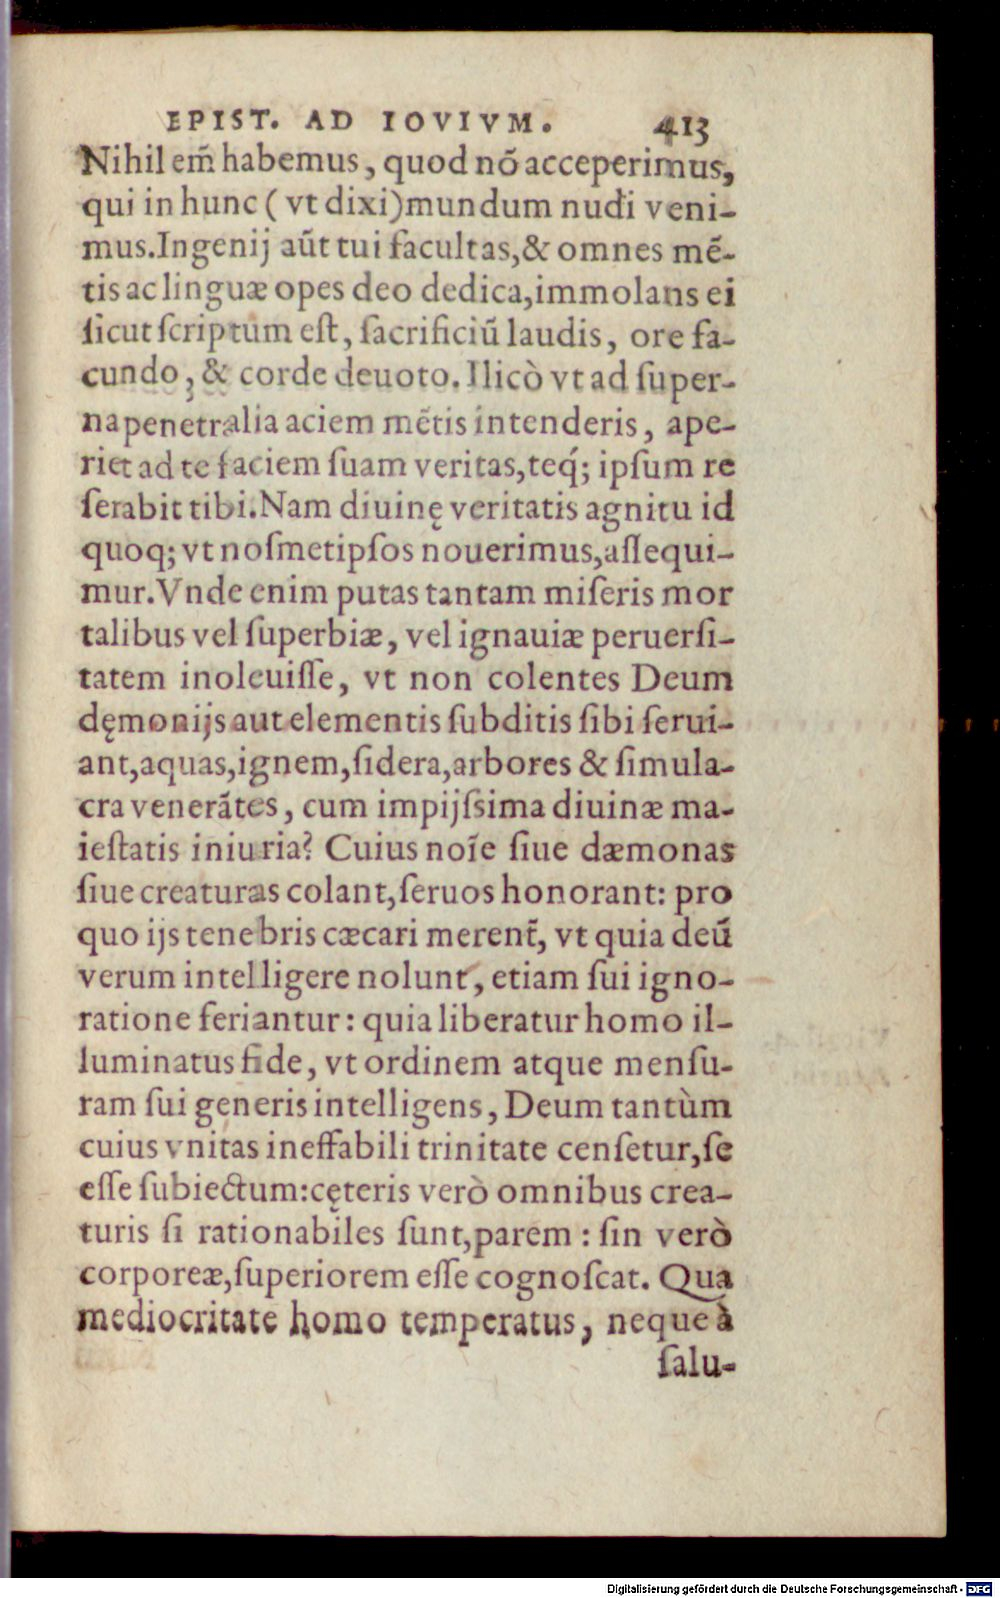 EPIST. AD IOVIVM. 413
Nihil em̃ habemus, quod nō acceperimus,
qui in hunc ( vt dixi)mundum nudi veni-
mus.Ingenij aũt tui facultas,& omnes mē-
tis ac linguæ opes deo dedica,immolans ei
ſicut ſcriptum eſt, ſacrificiũ laudis, ore fa-
cundo, & corde deuoto. Ilicò vt ad ſuper-
na penetralia aciem mētis intenderis, ape-
riet ad te faciem ſuam veritas,teq́; ipſum re
ſerabit tibi.Nam diuinę veritatis agnitu id
quoq; vt noſmetipſos nouerimus,aſſequi-
mur.Vnde enim putas tantam miſeris mor
talibus vel ſuperbiæ, vel ignauiæ peruerſi-
tatem inoleuiſſe, vt non colentes Deum
dęmonijs aut elementis ſubditis ſibi ſerui-
ant,aquas,ignem,ſidera,arbores & ſimula-
cra venerātes, cum impijſsima diuinæ ma-
ieſtatis iniuria? Cuius noīe ſiue dæmonas
ſiue creaturas colant,ſeruos honorant: pro
quo ijs tenebris cæcari merent̃, vt quia deũ
verum intelligere nolunt, etiam ſui igno-
ratione feriantur: quia liberatur homo il-
luminatus fide, vt ordinem atque menſu-
ram ſui generis intelligens, Deum tantùm
cuius vnitas ineffabili trinitate cenſetur,ſe
eſſe ſubiectum:cęteris verò omnibus crea-
turis ſi rationabiles ſunt,parem : ſin verò
corporeæ,ſuperiorem eſſe cognoſcat. Qua
mediocritate homo temperatus, neque à
ſalu-
Digitalisierung gefördert durch die Deutsche Forschungsgemeinschaft - DFG